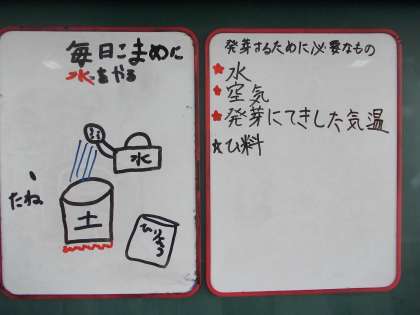 毎日こまめに
水をやる
水
たね
土
ひりょう
発芽するために必要なもの
★水
★空気
★発芽にてきした気温
☆ひ料